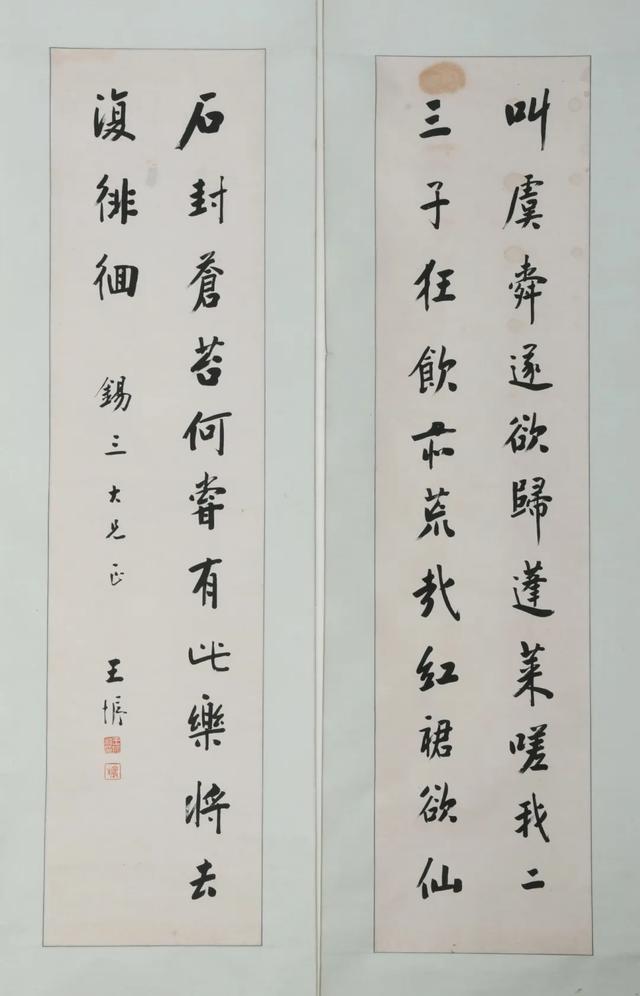 叫虞舜遂欲歸蓬萊嗟我二
三子狂飲亦荒哉紅裙欲仙
石封蒼苔何嘗有此樂將去
復徘徊
錫三大兄正
王